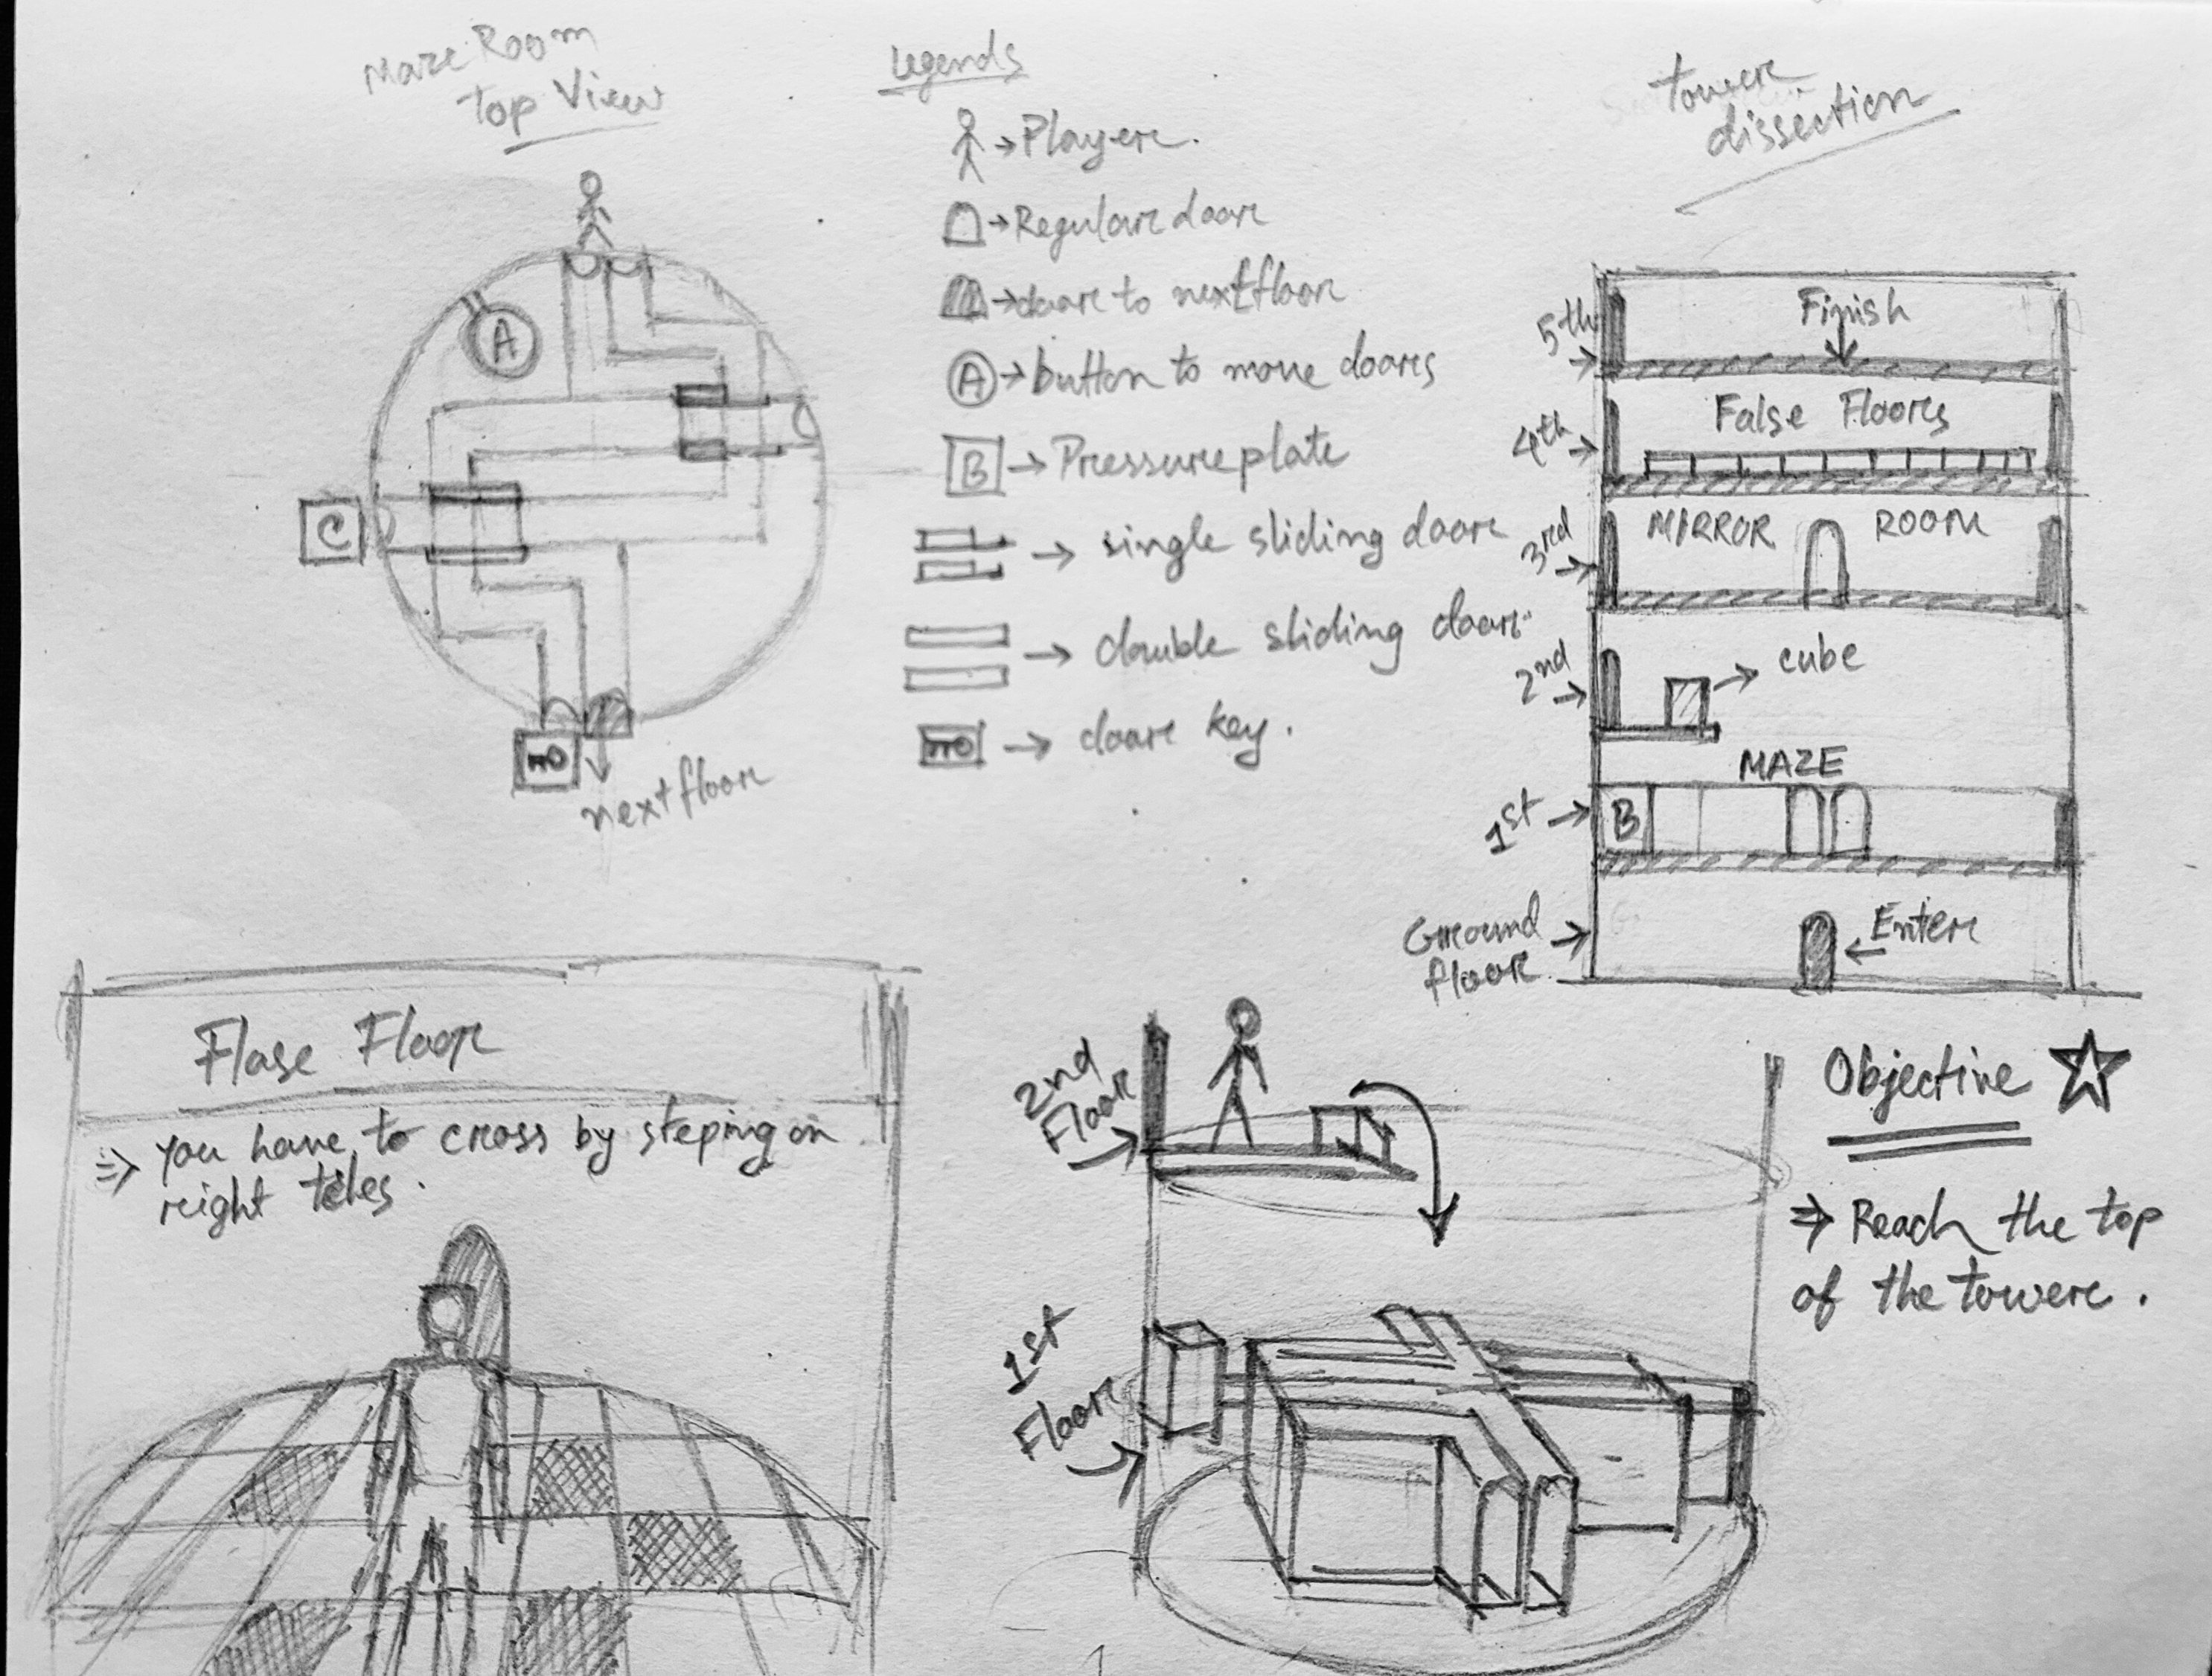 Maze Room
top View
A
C
next floor
Legends
→ Player.
→ Regular door
→ door to next floor
A → button to move doors
B → Pressure plate
→ single sliding door
→ double sliding door
→ door key.
tower
dissection
5th →
Finish
4th →
False Floors
3rd →
MIRROR ROOM
2nd →
→ cube
MAZE
1st →
B
Ground
floor →
← Enter
Flase Floor
⇒ You have to cross by steping on
right tiles.
2nd
Floor
1st
Floor
Objective ☆
⇒ Reach the top
of the tower.